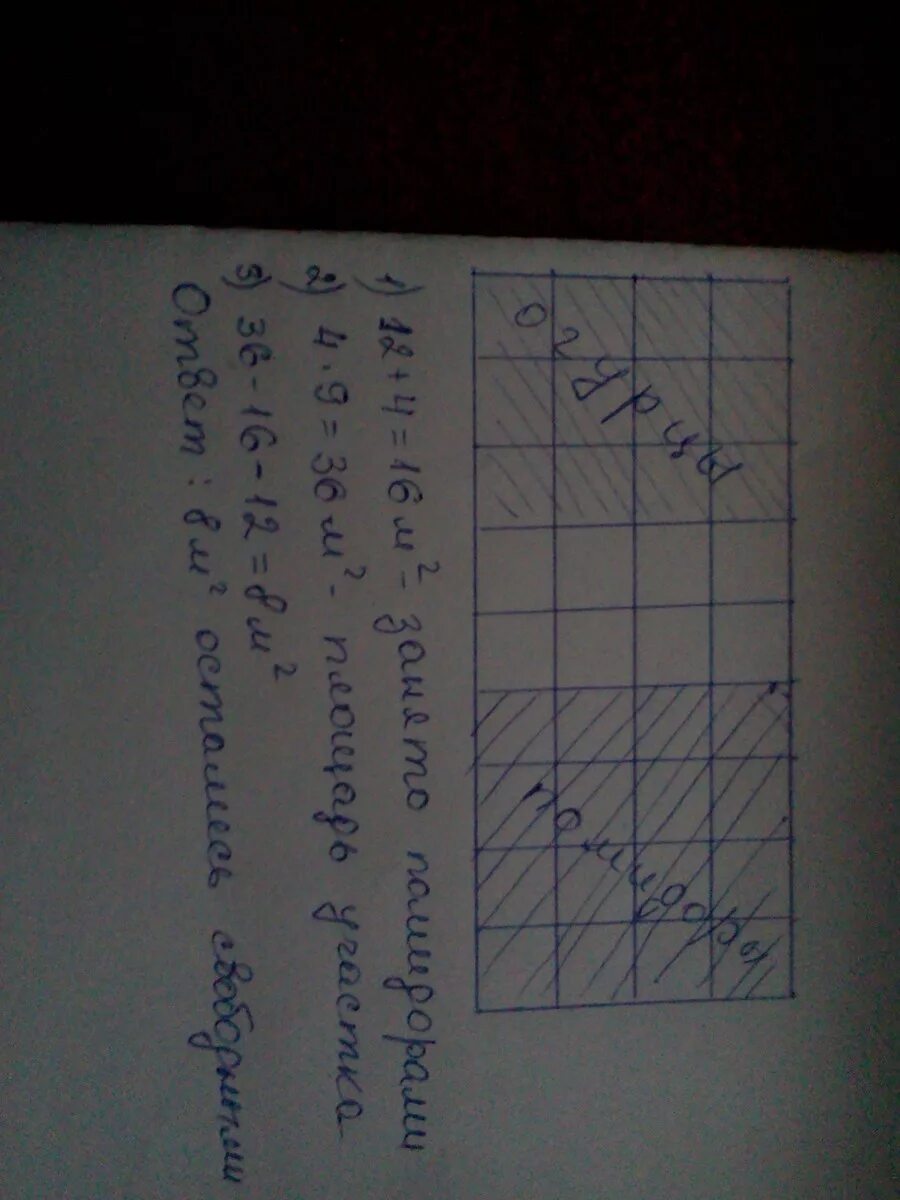 огурцы
помидоры
1) 12+4=16 м² - занято помидорами
2) 4·9=36 м² - площадь участка
3) 36-16-12=8 м²
Ответ: 8 м² остались свободными